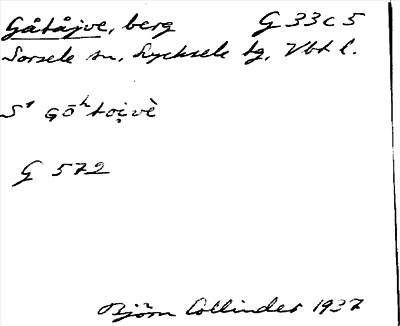 Gåtåjve, berg G 33 c 5
Sorsele sn, Lycksele tg, Vbt l.
S¹ gō̜ʰtoi̭vè
G 572
Björn Collinder 1937